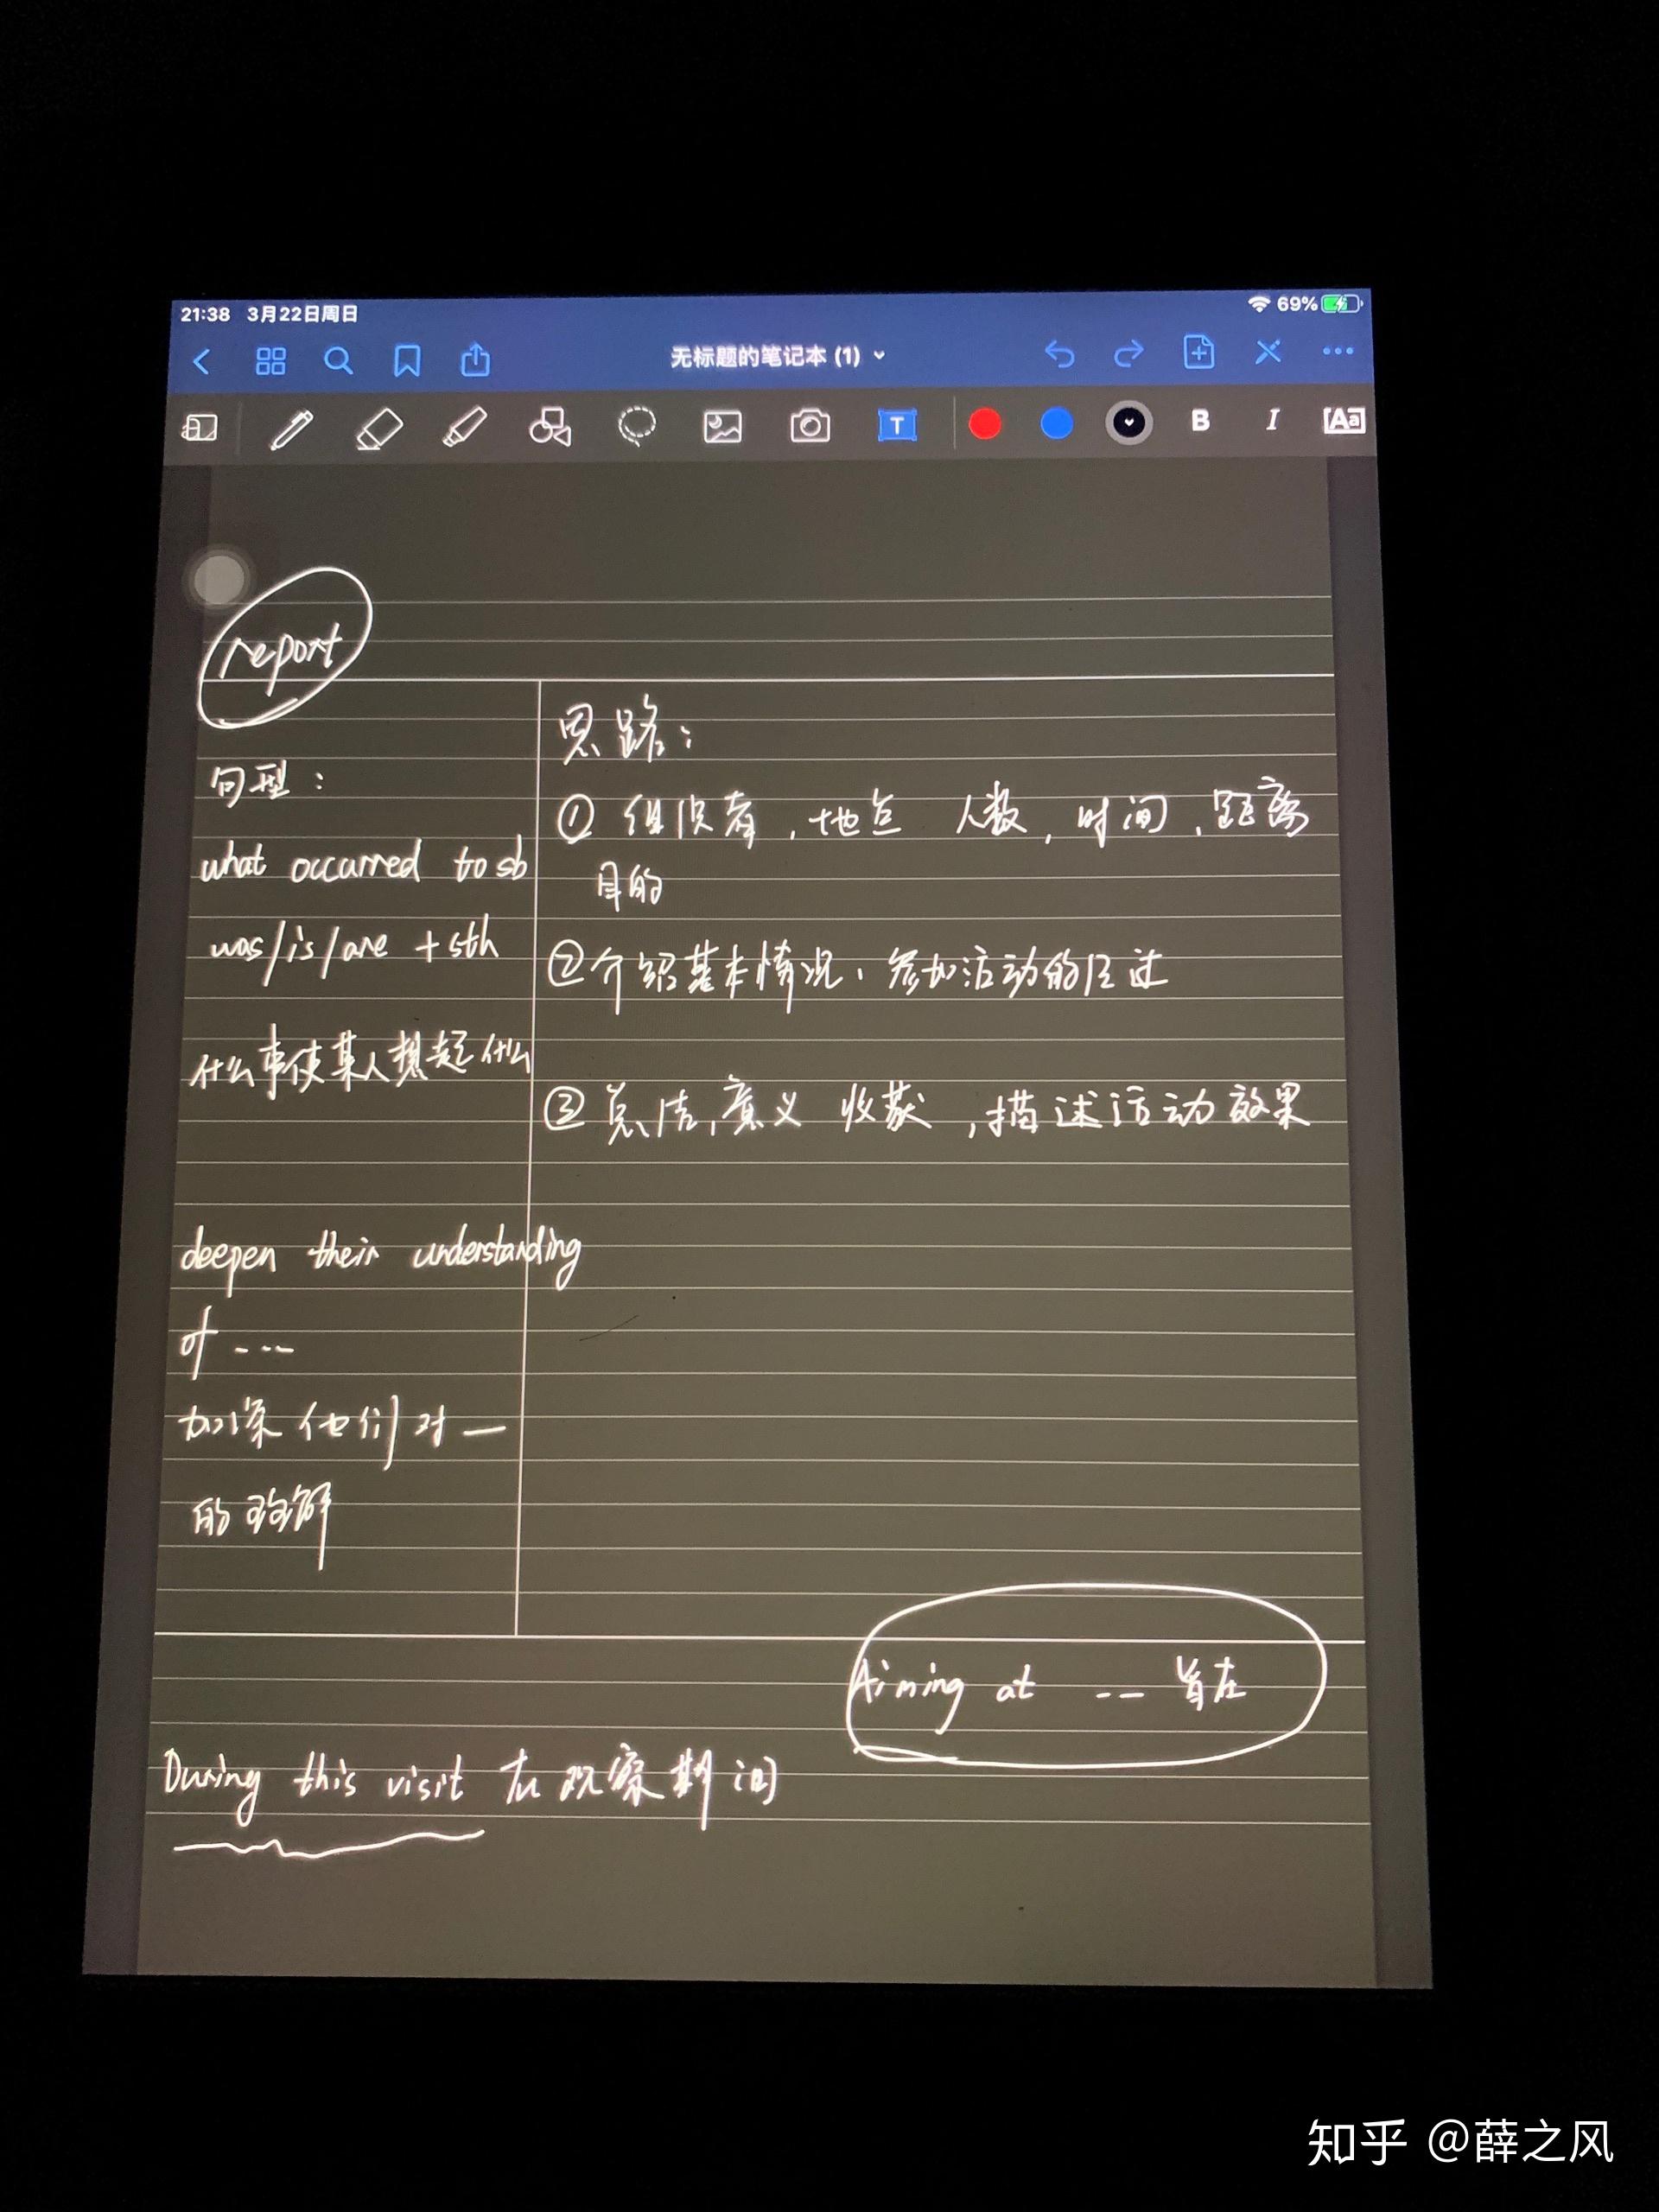 21:38 3月22日周日
69%
无标题的笔记本 (1)
T
B I Aa
report
句型：
what occurred to sb
was/is/are + sth
什么事使某人想起什么
deepen their understanding
of ---
加深他们对一
的理解
思路：
① 组织者，地点 人数，时间，距离
目的
②介绍基本情况，参加活动的经过
③ 总结，意义 收获，描述活动效果
Aiming at -- 旨在
During this visit 在观察期间
知乎 @薛之风